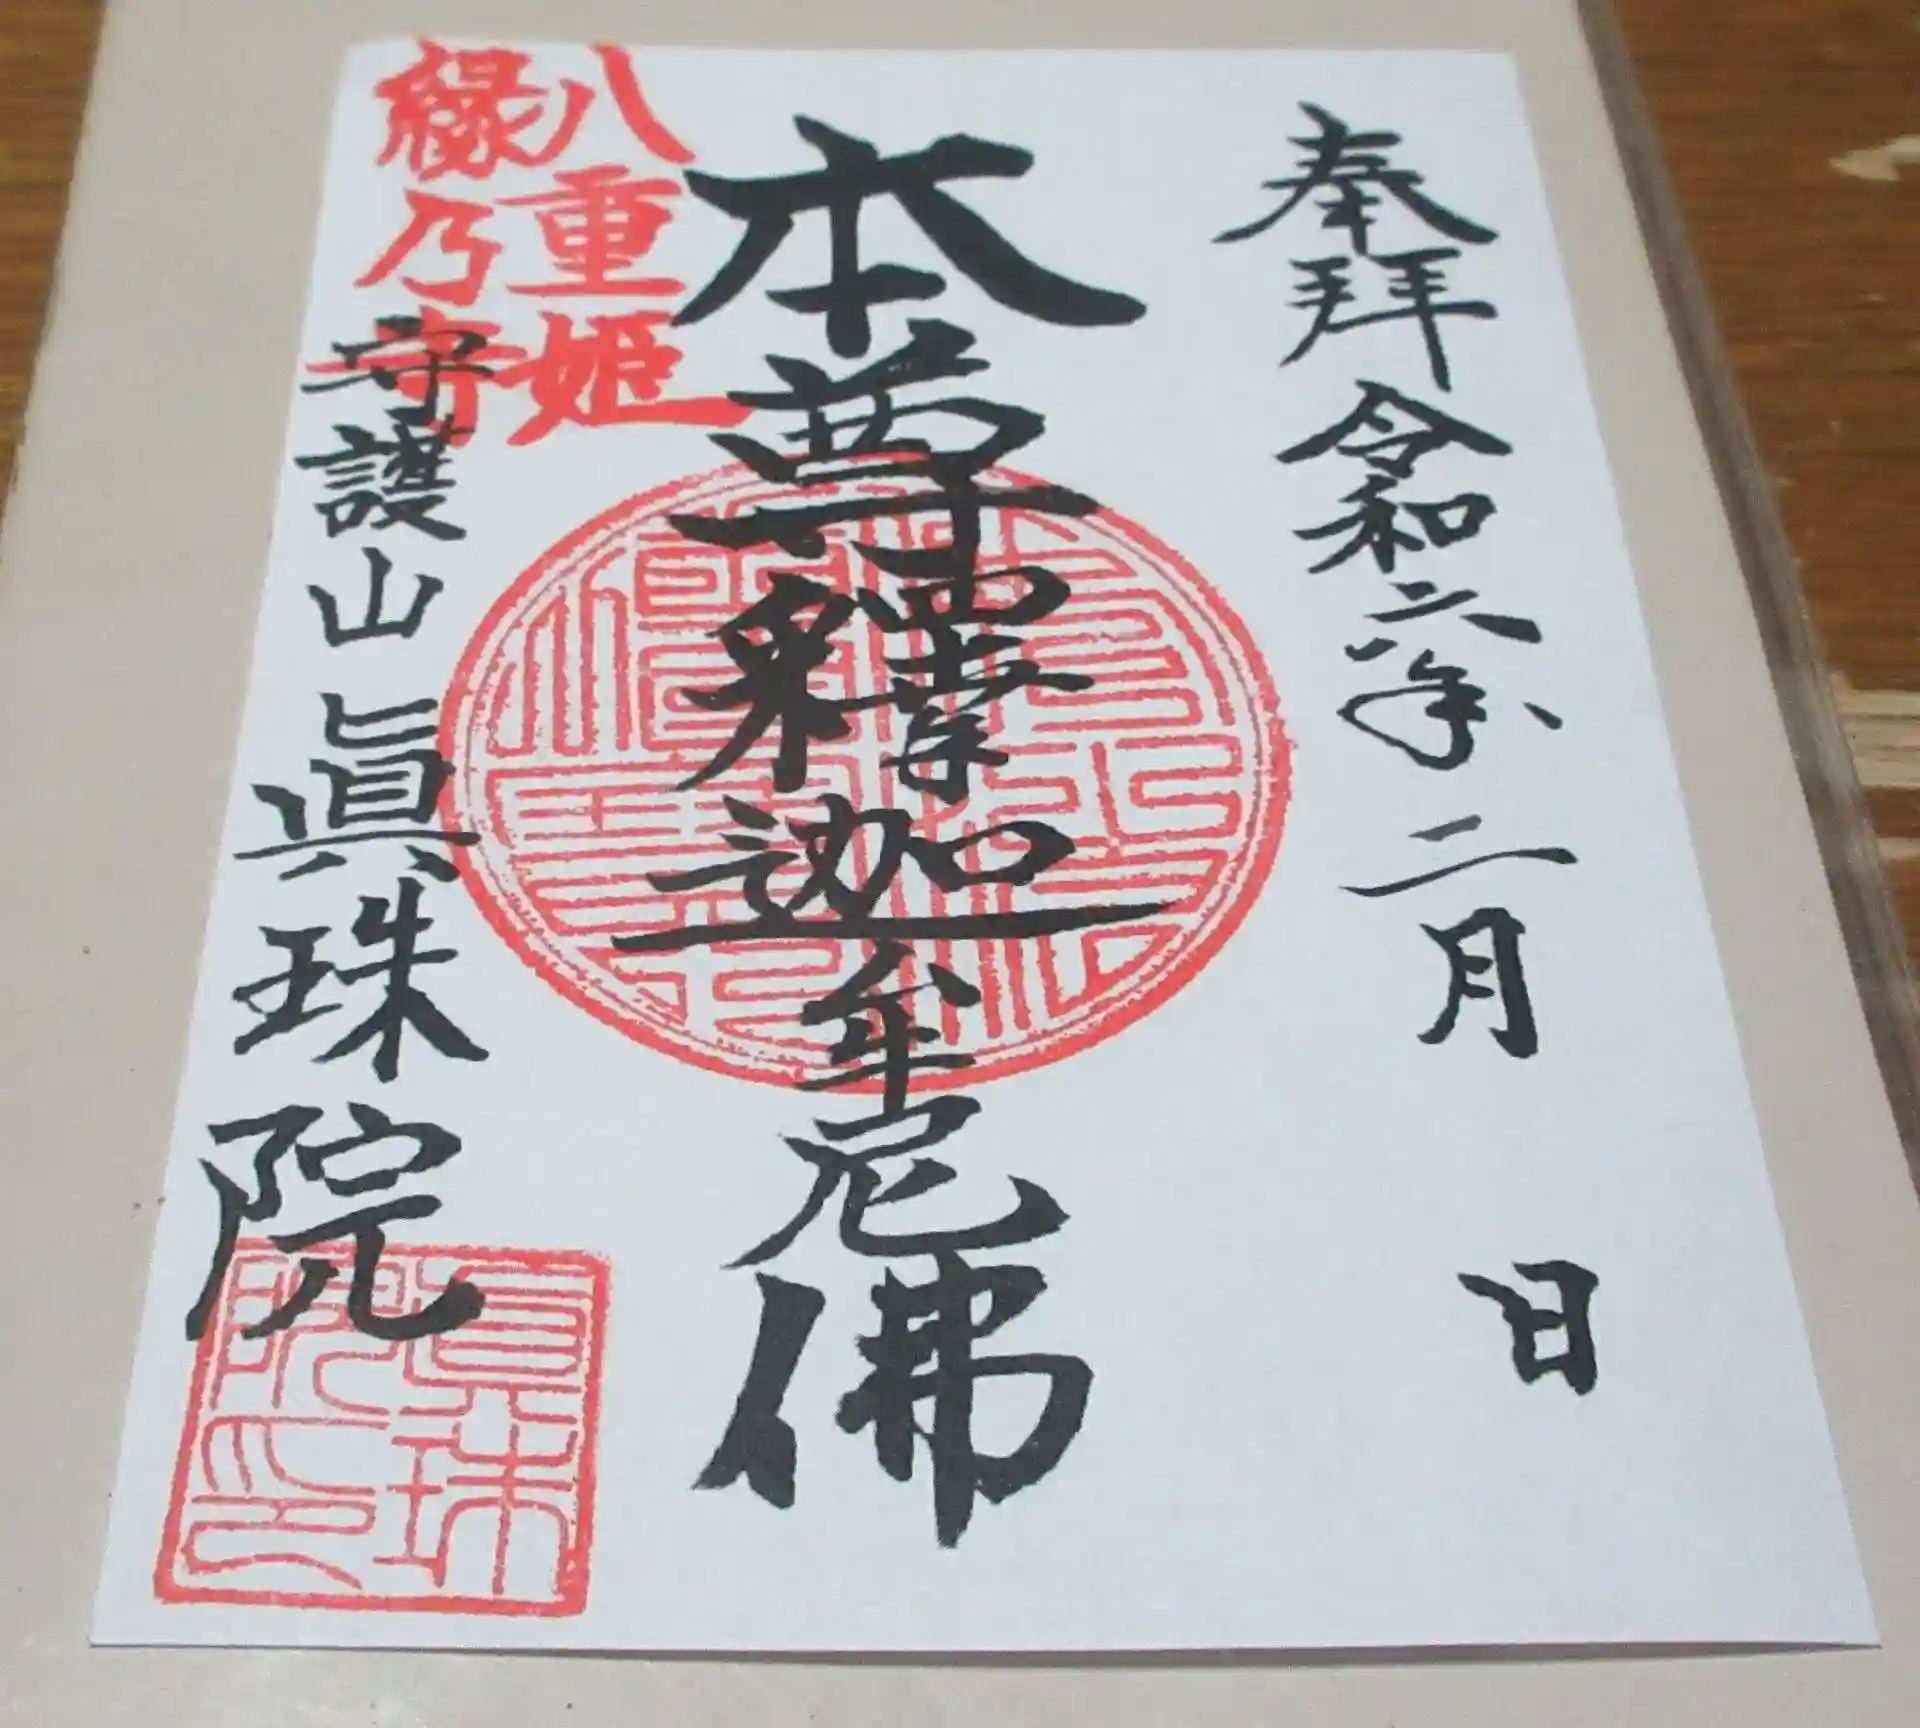 奉拝 令和六年 二月 日
本尊釋迦牟尼佛
八重姫
縁乃寺
守護山 眞珠院
眞珠院印